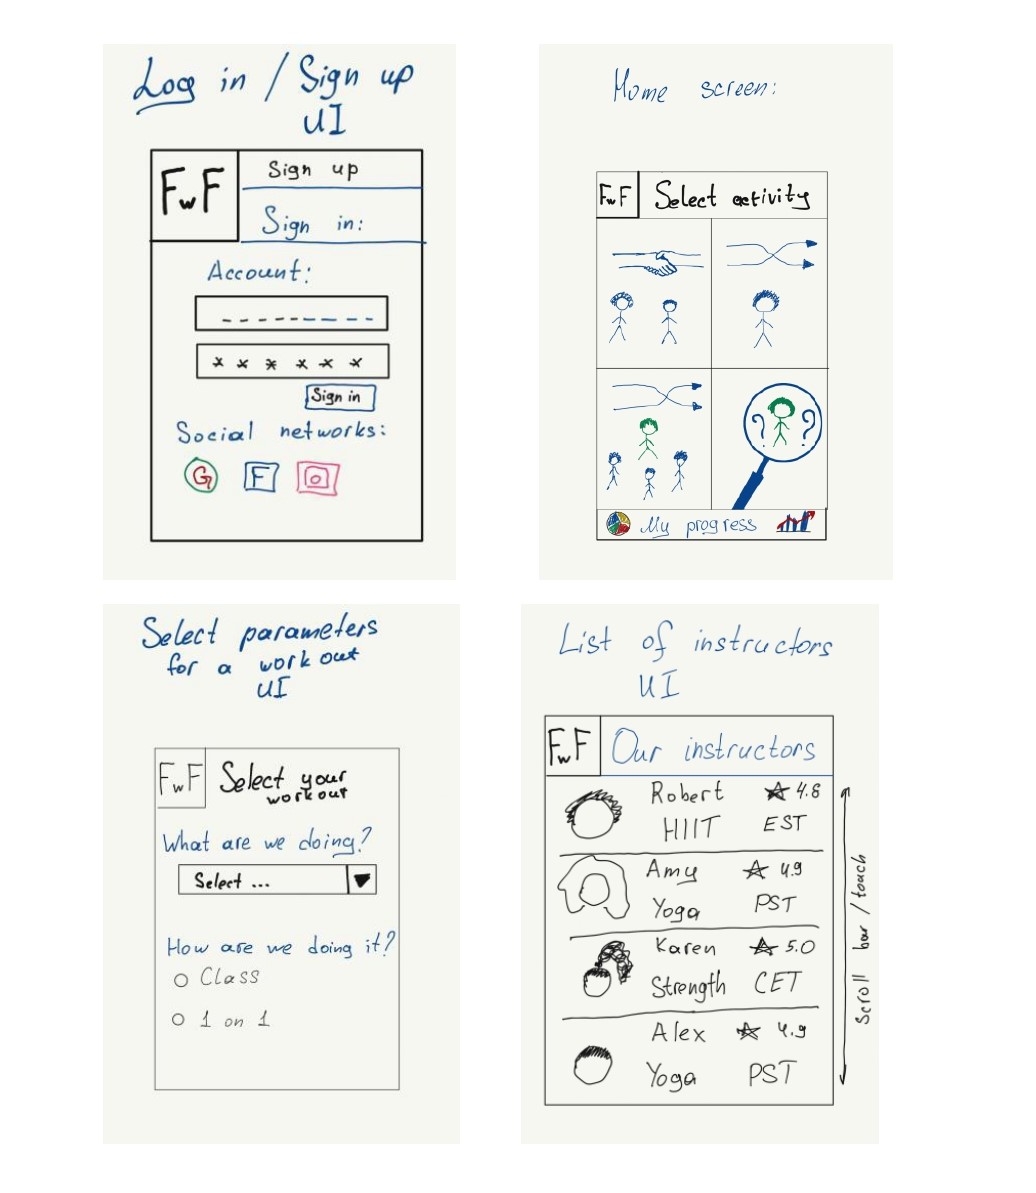 Log in / Sign up
UI
FwF
Sign up
Sign in:
Account:
_ _ _ _ _ _ _ _ _
* * * * * *
Sign in
Social networks:
G F
Home screen:
FwF Select activity
? ?
My progress
Select parameters
for a work out
UI
FwF Select your
workout
What are we doing?
Select ...
How are we doing it?
Class
1 on 1
List of instructors
UI
FwF Our instructors
Robert 4.8
HIIT EST
Amy 4.9
Yoga PST
Karen 5.0
Strength CET
Alex 4.9
Yoga PST
Scroll bar / touch